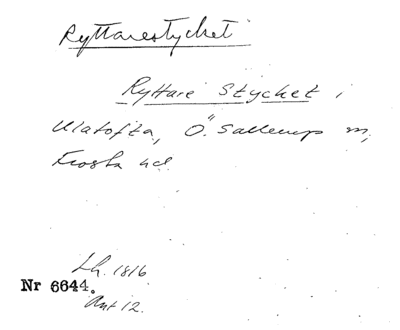 Ryttarestycket
Ryttare Stycket i
Ulatofta, Ö. Sallerup sn,
Frosta hd
Lh. 1816
Nr 6644.
Akt 12.